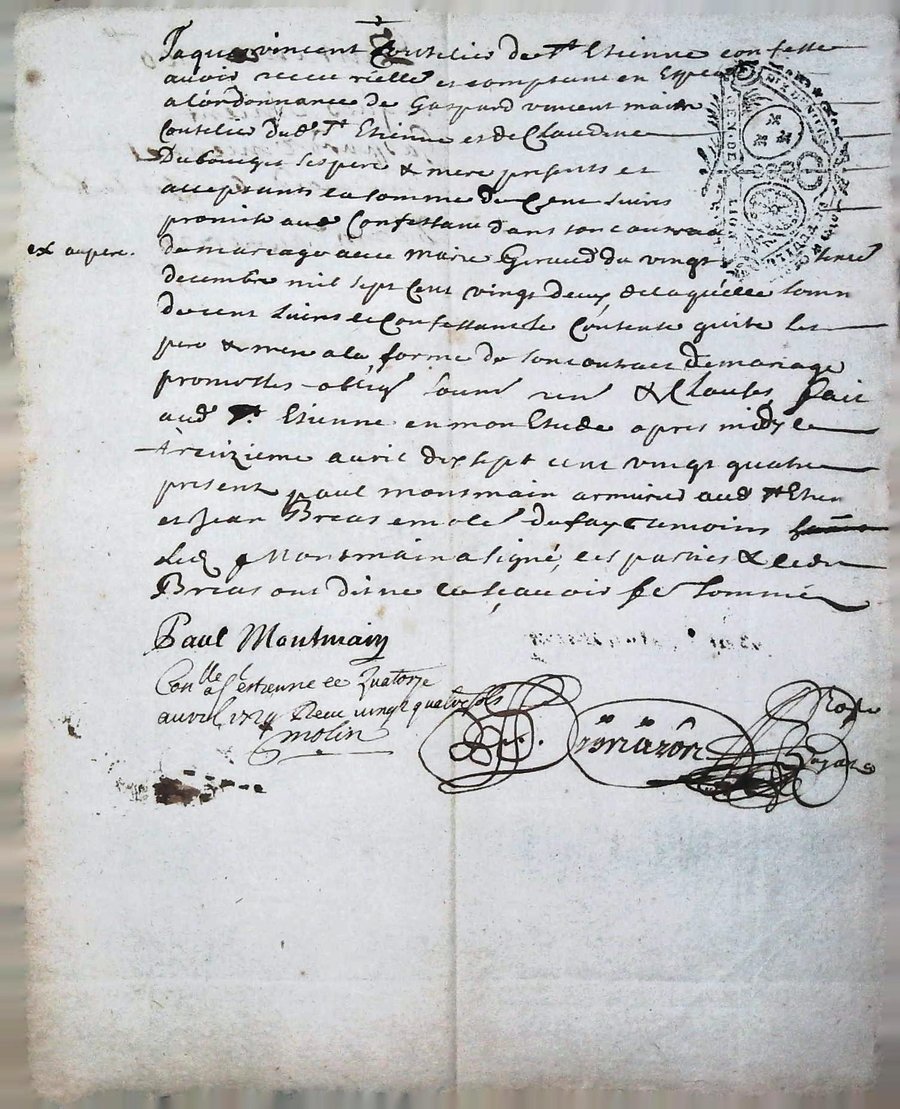 Jaques vincent Coutelier de St Etienne confesse
avoir receu rielle et comptant en Espece
a lordonnance de Gaspard vincent maitre
Coutelier dud. St Etienne et de Claudine
Dubouchet ses pere & mere presents et
acceptants la somme de Cent livres
promise aud Confessant dans son contrat
ex aupere.
de mariage avec Marie Geraud du vingt
decembre mil sept Cent vingt deux de laquelle somm
de cent livres le Confessant se Contente quitte les
pere & mere a la forme de son contrat de mariage
promesses oblig soum ren & Clauses, fait
aud St Etienne en mon Etude apres midy le
treizieme avril dix sept cent vingt quatre
present paul montmain armurier aud St Etien
et Jean Breas dufay temoins
Led Montmain a signé, les parties & led
Breas ont dit ne le sçavoir fe sommé
Paul Montmain
Conlle a St estienne le Quatorze
avril 1724 Receu vingt quatre sols
molin
GEN. DE LION